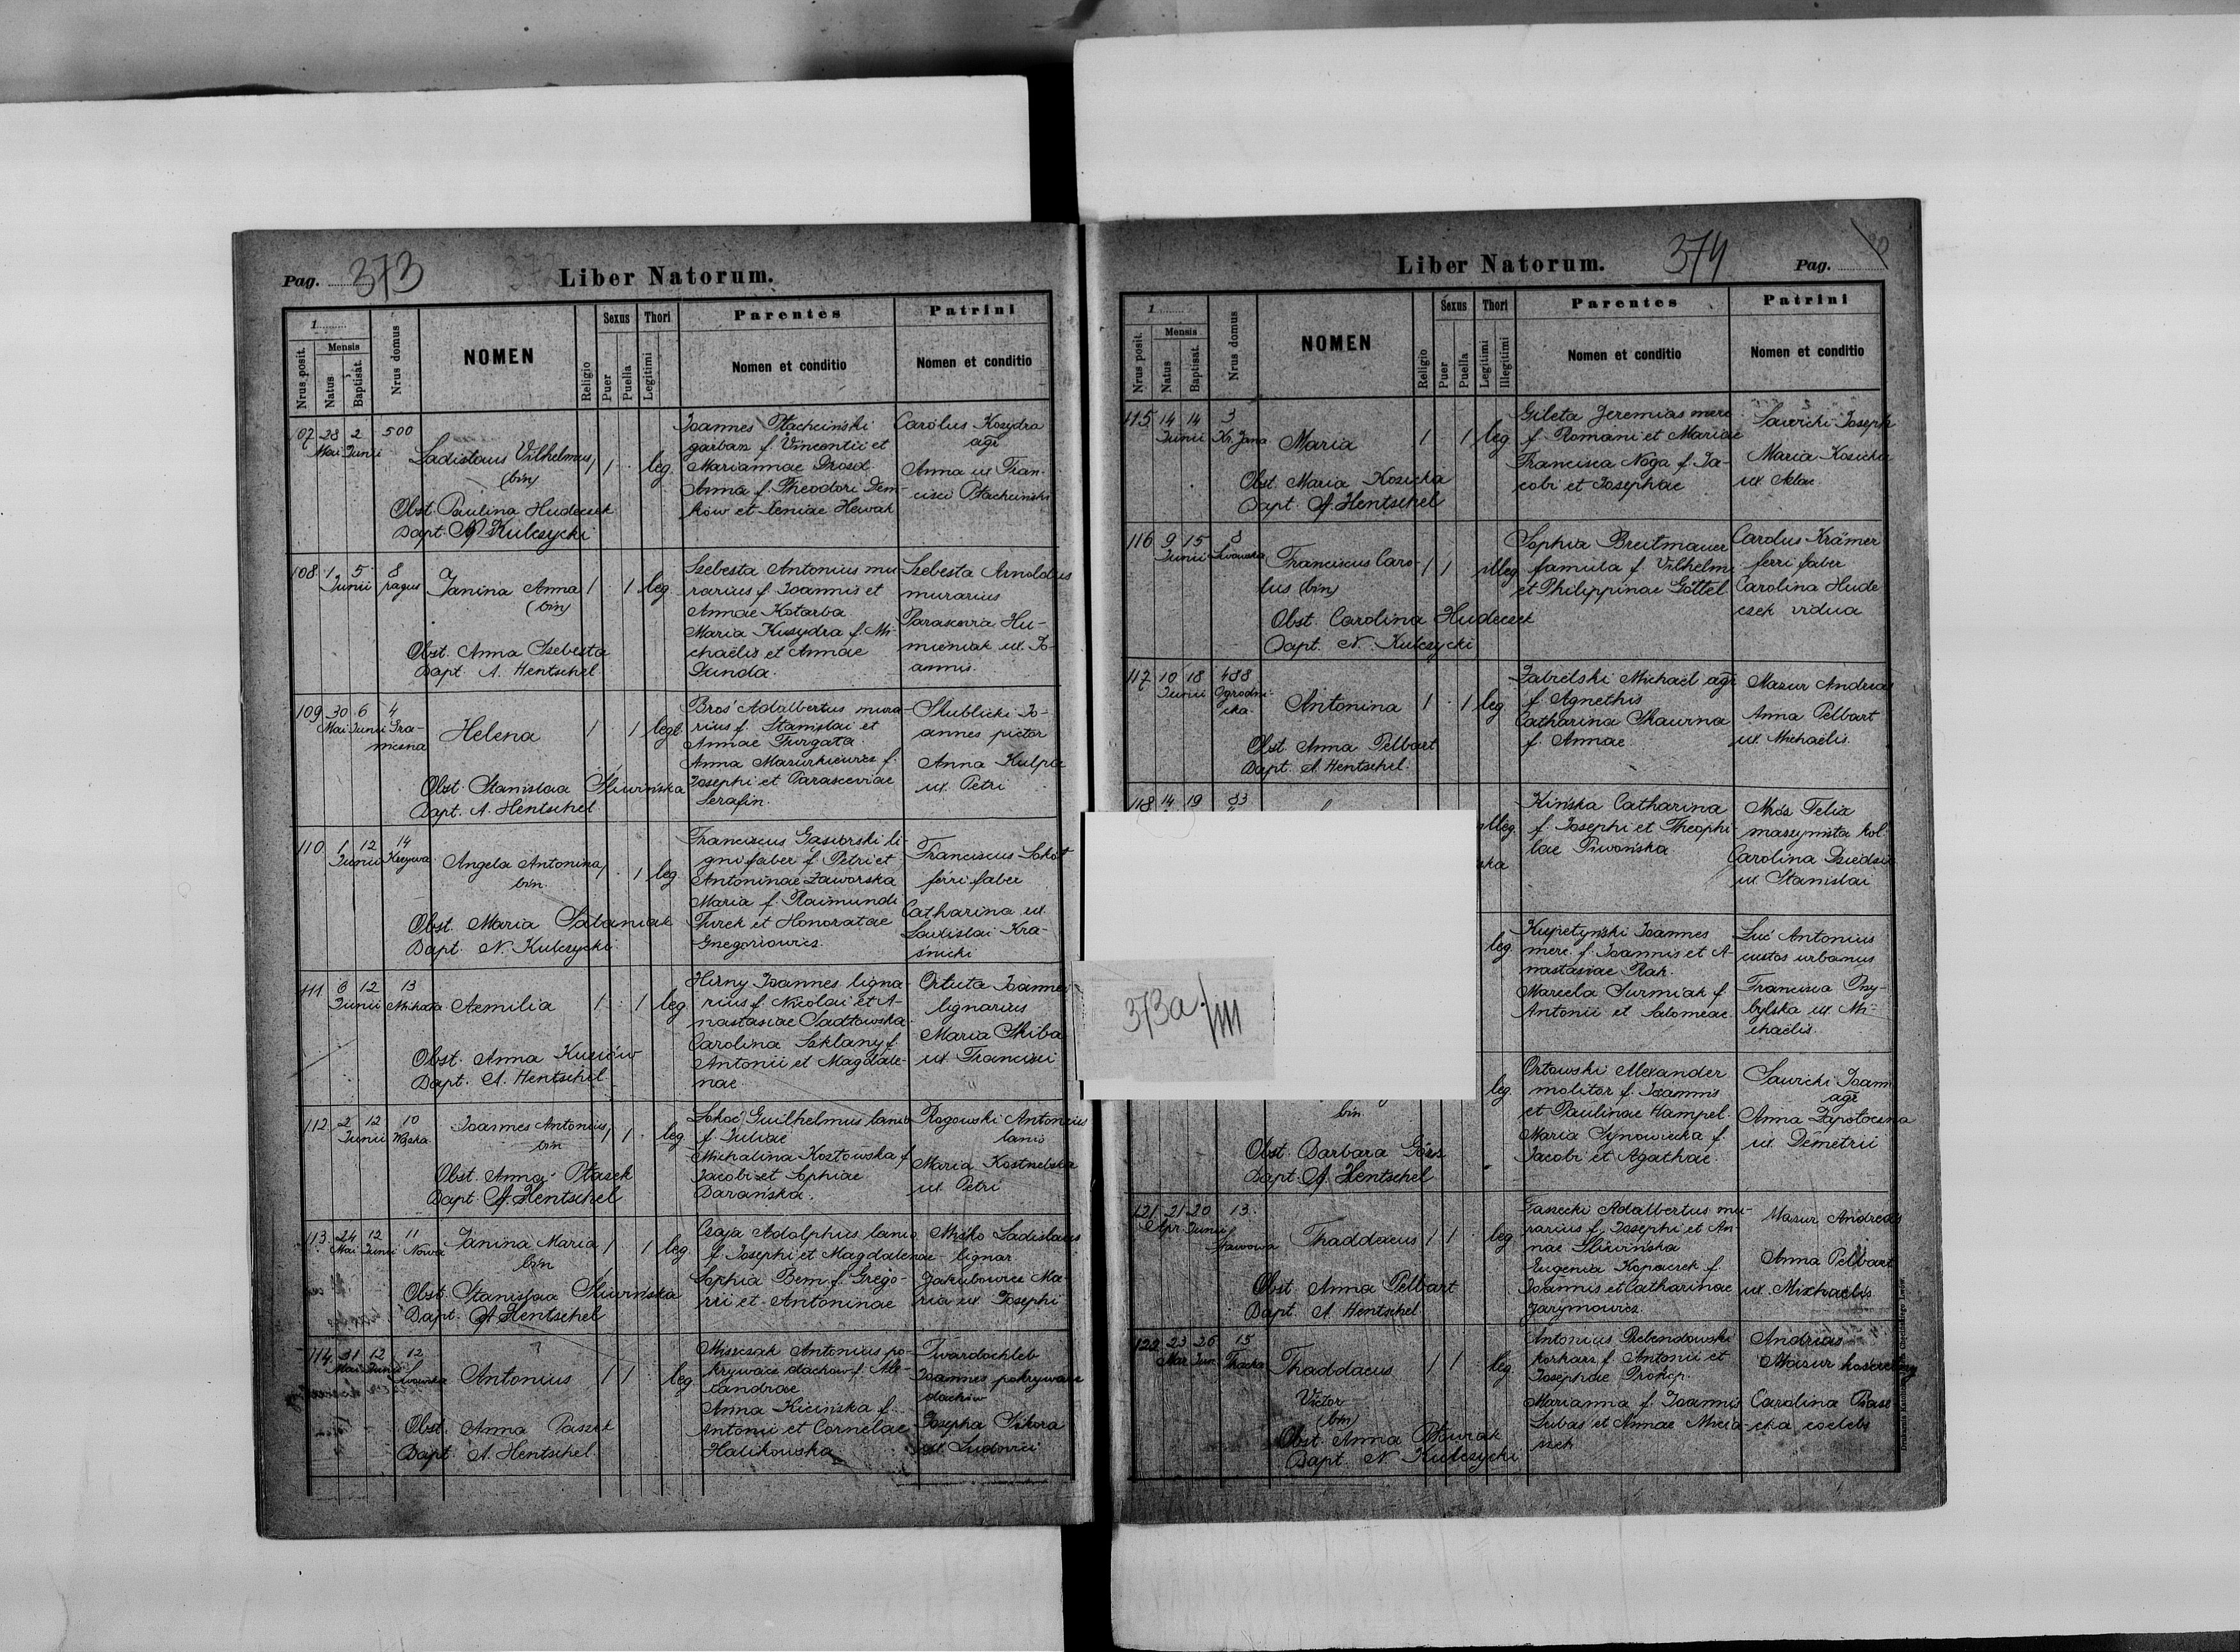 Pag. 373
Liber Natorum.
1
Nrus posit.
Mensis
Natus
Baptisat.
Nrus domus
NOMEN
Religio
Sexus
Puer
Puella
Thori
Legitimi
Parentes
Nomen et conditio
Patrini
Nomen et conditio
107 28 2 500
Mai Junii
Ladislaus Vilhelmus 1 1 leg
(bin)
Obst. Paulina Hudeczek
Bapt. N Kulczycki
Joannes Ptachciński
garbarz f. Vincentii et
Mariannae Drozd.
Anna f. Theodori Dem-
ków et Xeniae Hewak
Carolus Kosydra
agr
Anna ux Fran-
cisci Ptachciński
108 1 5 8
Junii pagus
Janina Anna 1 1 leg.
(bin)
Obst. Anna Szebesta
Bapt. A. Hentschel
Szebesta Antonius mu-
rarius f. Joannis et
Annae Kotarba
Maria Kusydra f. Mi-
chaëlis et Annae
Dunda.
Szebesta Arnoldus
murarius
Parascevia Hu-
mieniak ux. Jo-
annis.
109 30 6 4
Mai Junii Gra-
niczna
Helena 1 1 legt.
Obst. Stanislaa Śliwińska
Bapt. A. Hentschel
Broś Adalbertus mura-
rius f. Stanislai et
Annae Furgata
Anna Mazurkiewicz f.
Josephi et Parasceviae
Serafin.
Stublicki Jo-
annes pictor
Anna Kulpa
ux. Petri
110 1 12 14
Junii Krzywa
Angela Antonina 1 1 leg
bin.
Obst. Maria Sałaniak
Bapt. N. Kulczycki
Franciscus Gąsiorski li-
gnifaber f. Petri et
Antoninae Zaworska
Maria f. Raimundi
Turek et Honoratae
Gregorowicz.
Franciscus Sokół
ferri faber
Catharina ux.
Ladislai Kra-
śnicki
111 6 12 13
Junii
Aemilia 1 1 leg
Obst. Anna Kuziów
Bapt. A. Hentschel
Hirny Joannes ligna-
rius f. Nicolai et A-
nastasiae Sadłowska
Carolina Szklany f.
Antonii et Magdale-
nae.
Ortuta Joannes
lignarius
Maria Skiba
ux Francisci
112 2 12 10
Junii Wąska
Joannes Antonius 1 1 leg
bin
Obst. Anna Ptaszek
Bapt A. Hentschel
Guilhelmus lanio
f. Juliae
Michalina Kozłowska f
Jacobi et Sophiae
Barańska.
Rogowski Antonius
lanio
Maria
ux Petri
113 24 12 11
Mai Junii Nowa
Janina Maria 1 1 leg
bin
Obst. Stanislaa Śliwińska
Bapt. A Hentschel
Czaja Adolphus lanio
f. Josephi et Magdalenae
Sophia Bem f. Grego-
rii et Antoninae
Miśko Ladislaus
lignar
Jakubowicz Ma-
ria ux Josephi
114 31 12 12
Mai Junii Lwowska
Antonius 1 1 leg
Obst. Anna Paszek
Bapt. A. Hentschel
Miszczak Antonius po-
krywacz dachów f. Ale-
xandrae
Anna Kicińska f.
Antonii et Corneliae
Halikowska
Twardochleb
Joannes pokrywacz
dachów
Josepha Sikora
ux. Ludovici
Liber Natorum.
374
Pag. 20
1
Nrus posit.
Mensis
Natus
Baptisat.
Nrus domus
NOMEN
Religio
Sexus
Puer
Puella
Thori
Legitimi
Illegitimi
Parentes
Nomen et conditio
Patrini
Nomen et conditio
115 14 14 3
Junii Kr. Jana
Maria 1 1 leg
Obst. Maria Kosicka
Bapt. A. Hentschel
Gileta Jeremias merc
f. Romani et Mariae
Francisca Noga f. Ja-
cobi et Josephae
Sawicki Joseph
Maria Kosicka
ux
116 9 15 8
Junii Lwowska
Franciscus Caro- 1 1 illeg
lus (bin)
Obst. Carolina Hudeczek
Bapt. N. Kulczycki
Sophia Breitmauer
famula f. Vilhelmi
et Philippinae Göttel
Carolus Krämer
ferri faber
Carolina Hude
czek vidua
117 10 18 488
Junii Ogrodni-
cka
Antonina 1 1 leg
Obst Anna Pelbart
Bapt. A. Hentschel.
Zabielski Michael agr
f. Agnethis
Catharina Skaurna
f. Annae
Mazur Andreas
Anna Pelbart
ux. Michaëlis.
118 14 19 83
illeg
ska
Kińska Catharina
f. Josephi et Theophi-
lae Piwońska
Mróz Felix
maszynista kol
Carolina
ux Stanislai
leg.
Kupetyński Joannes
merc. f. Joannis et A-
nastasiae Rak.
Marcela Surmiak f.
Antonii et Salomeae
Luć Antonius
custos urbanus
Francisca Przy-
bylska ux Mi-
chaëlis
373a/III
leg.
bin.
Obst Barbara Görz
Bapt. A. Hentschel
Orłowski Alexander
molitor f. Joannis
et Paulinae Hampel
Maria Synowiecka f.
Jacobi et Agathae
Sawicki Joann
agr
Anna Zapotoczna
ux. Demetrii
121 21 20 13
Apr Junii Stawowa
Thaddaeus 1 1 leg
Obst Anna Pelbart
Bapt. A Hentschel
Jasecki Adalbertus mu-
rarius f. Josephi et An-
nae Śliwińska
Eugenia Kopaczek f.
Joannis et Catharinae
Jarymowicz
Mazur Andreas
Anna Pelbart
ux. Michaelis
122 23 26 15
Mar Jun. Tkacka
Thaddaeus 1 1 leg
Victor
(bin)
Obst Anna Ptaszek
Bapt. N Kulczycki
Antonius Rebendowski
f. Antonii et
Josephae Prokip.
Marianna f. Joannis
Lubas et Annae
Andreas
Mazur
Carolina
coelebs